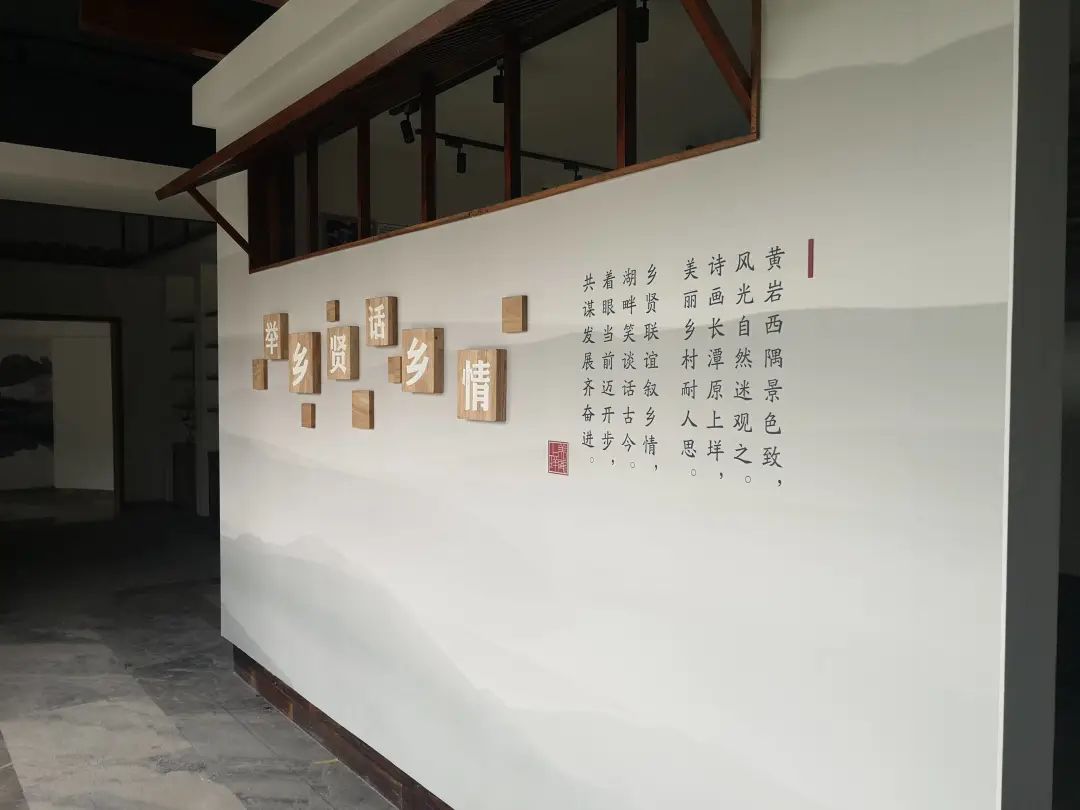 举乡贤话乡情
黄岩西隅景色致，
风光自然迷观之。
诗画长潭原上垟，
美丽乡村耐人思。
乡贤联谊叙乡情，
湖畔笑谈话古今。
着眼当前迈开步，
共谋发展齐奋进。